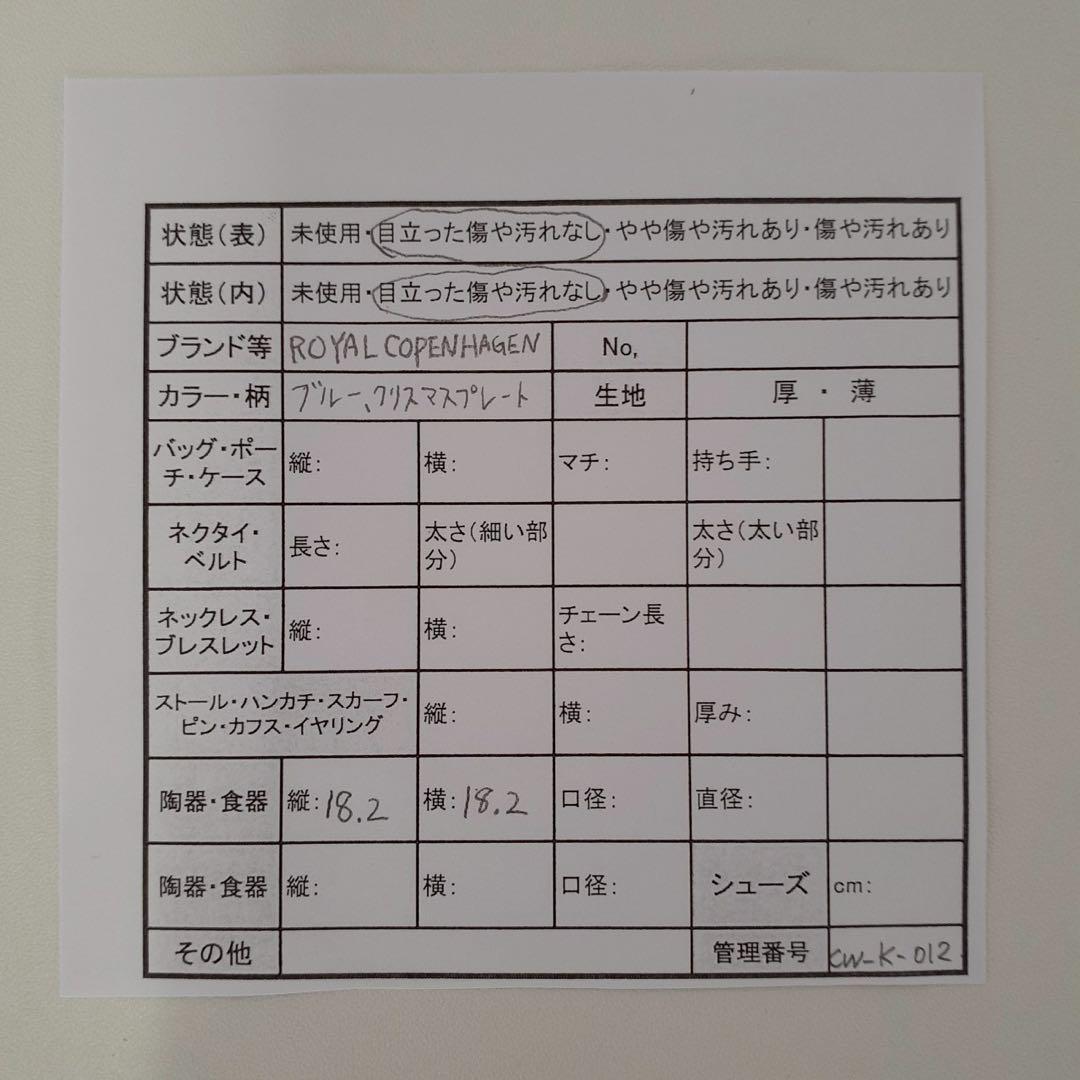 状態(表) 未使用・目立った傷や汚れなし・やや傷や汚れあり・傷や汚れあり
状態(内) 未使用・目立った傷や汚れなし・やや傷や汚れあり・傷や汚れあり
ブランド等 ROYAL COPENHAGEN No,
カラー・柄 ブルー、クリスマスプレート 生地 厚 ・ 薄
バッグ・ポー
チ・ケース
縦: 横: マチ: 持ち手:
ネクタイ・
ベルト
長さ:
太さ(細い部
分)
太さ(太い部
分)
ネックレス・
ブレスレット
縦: 横:
チェーン長
さ:
ストール・ハンカチ・スカーフ・
ピン・カフス・イヤリング
縦: 横: 厚み:
陶器・食器 縦:18.2 横:18.2 口径: 直径:
陶器・食器 縦: 横: 口径: シューズ cm:
その他 管理番号 CW-K-012